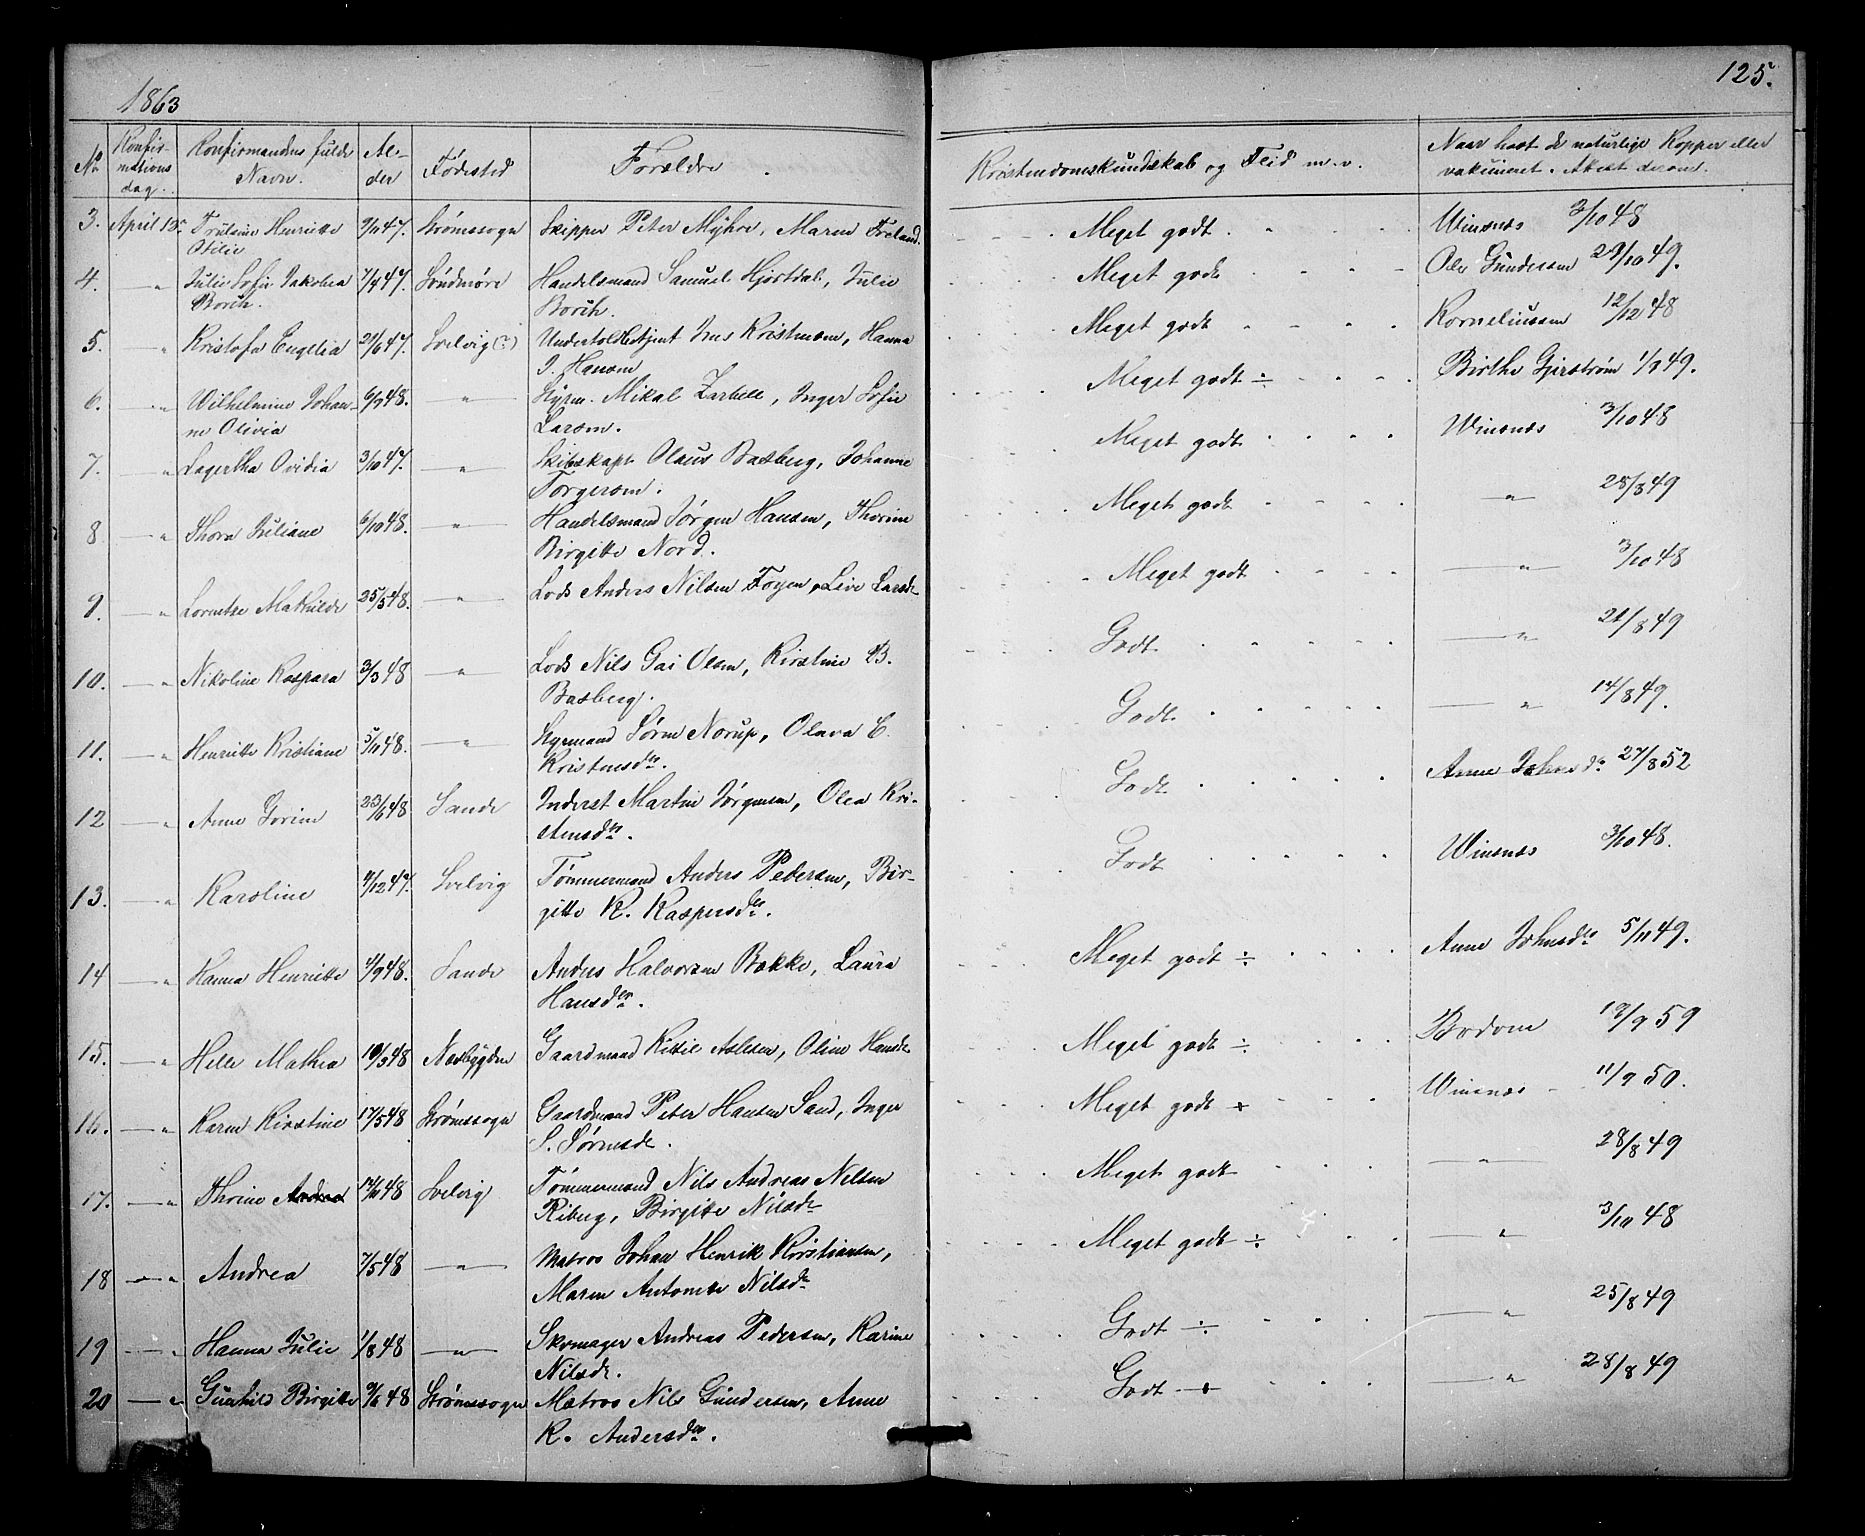 1863
125.
No Konfirmations dag. Konfirmandens fulde Navn. Alder Fødested Forældre. Kristendomskundskab og Flid m. v. Naar havt de naturlige Kopper eller vakcineret. Attest derom.
3. April 13. Henriette 47. Strømssogn Skipper Peter Myhre, Maren Froland. Meget godt. Winsnæs 3/10 48
Otilie
4. " Julie Sofie Jakobea 7/4 47. Søndmøre Handelsmand Samuel Hjortdal, Julie Meget godt Ole Gundersen 29/10 49.
Borch. Borch.
5. " Kristofa Engelia 21/6 47. Svelvig (?) Undertoldbetjent Jens Kristensen, Hanna Meget godt Korneliussen 12/12 48
J. Hansen
6. " Wilhelmine Johan- 6/3 48. " Styrm. Mikal Zarbell, Inger Sofie Meget godt ÷ Birthe Gjerstrøm 1/9 49.
ne Olivia Larsen.
7. " Lagertha Ovidia 3/10 47. " Skibskapt. Olaus Basberg, Johanne Meget godt Winsnæs 3/10 48
Torgersen.
8. " Thora Juliane 6/10 48. " Handelsmand Jørgen Hansen, Thorine Meget godt " 28/8 49
Birgitte Nord.
9. " Lorentse Mathilde 25/5 48. " Lods Anders Nilsen Foyen, Live Larsdr Meget godt " 3/10 48
10. " Nikoline Kaspara 3/3 48 " Lods Nils Gai Olsen, Kirstine B. Godt. " 21/8 49
Basberg.
11. " Henriette Kristiane 5/10 48. " Styrmand Søren Norup, Olava C. Godt. " 14/8 49.
Kristensdr.
12 " Anne Jorine 23/6 48 Sande Inderst Martin Jørgensen, Olea Kri- Godt Anne Johnsdr 27/8 52
stensdr.
13. " Karoline 4/12 47. Svelvig Tømmermand Anders Pedersen, Bir- Godt Winsnæs 3/10 48.
gitte K. Kaspersdr.
14 " Hanna Henriette 4/9 48. Sande Anders Halvorsen Bække, Laura Meget godt ÷ Anne Johnsdr 5/11 49.
Hansdr.
15. " Helle Mathea 10/3 48 Nesbygden Gaardmand Kittil Aslesen, Oline Hansdr Meget godt ÷ Bodom 19/9 59
16. " Karen Kirstine 17/5 48 Strømssogn Gaardmand Peter Hansen Sand, Inger Meget godt ÷ Winsnæs 11/9 50.
S. Sørensdr.
17. " Thrine Andrea 14/10 48 Svelvig Tømmermand Nils Andreas Nilsen Meget godt " 28/8 49
Riberg, Birgitte Nilsdr
18 " Andrea 7/5 48 " Matros Johan Henrik Kristiansen, Meget godt ÷ " 3/10 48
Maren Antonette Nilsdr
19 " Hanna Julie 1/8 48 " Skomager Andreas Pedersen, Karine Godt ÷ " 25/8 49
Nilsdr.
20 " Gunhild Birgitte 9/6 48 Strømssogn Matros Nils Gundersen, Anne Godt ÷ " 28/8 49
K. Andersdr.